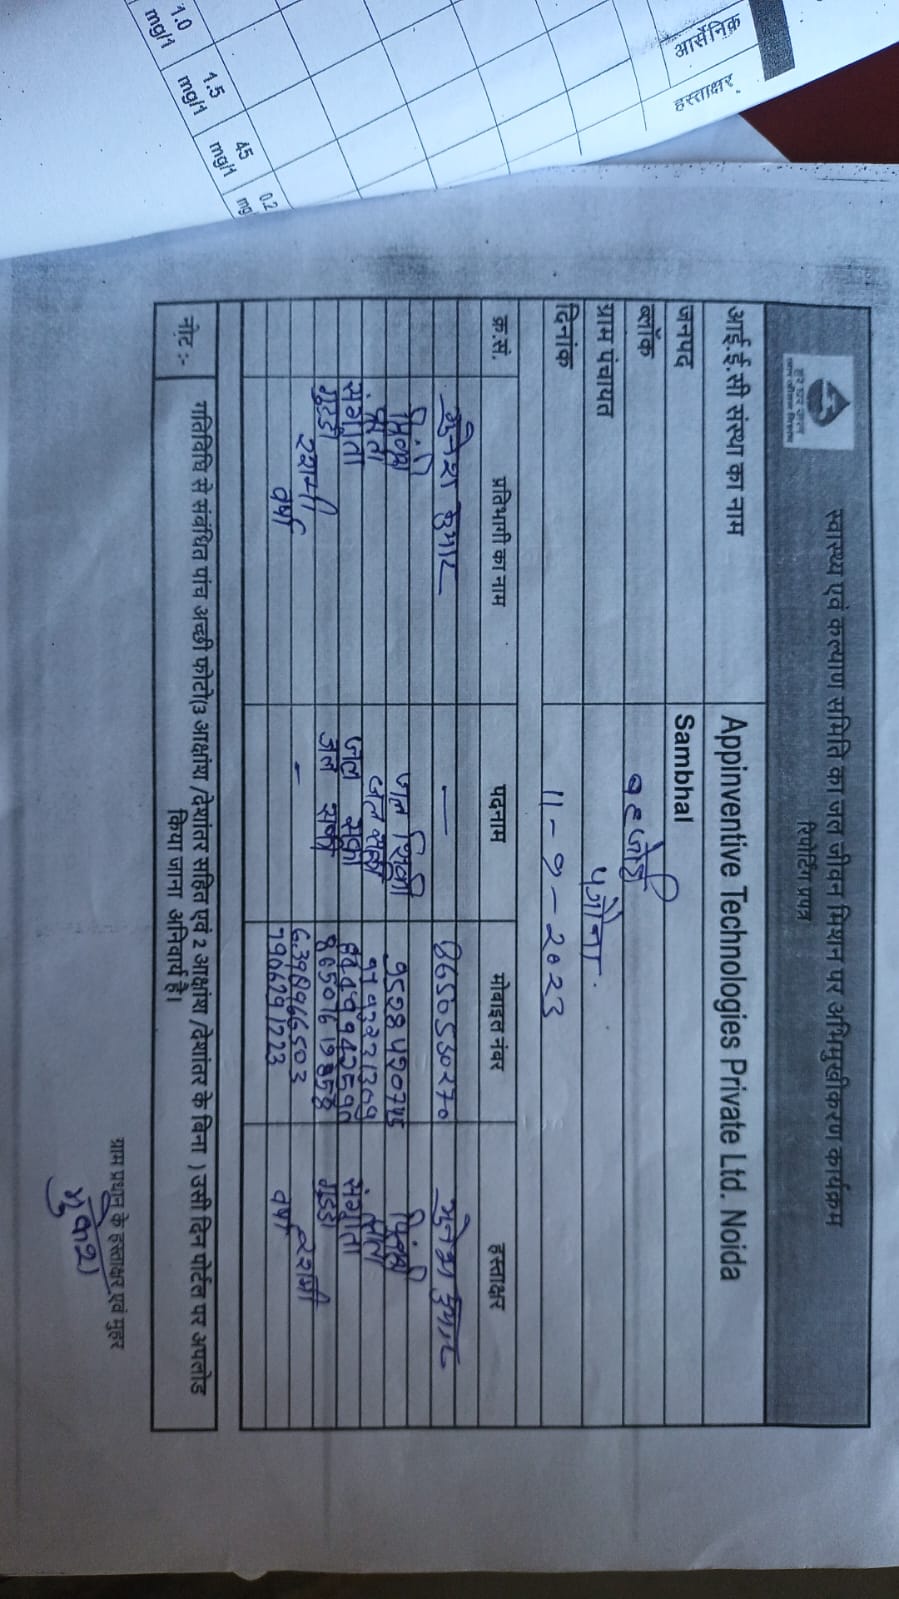 आर्सेनिक
हस्ताक्षर
1.0 mg/1
1.5 mg/1
45 mg/1
0.2 mg
स्वास्थ्य एवं कल्याण समिति का जल जीवन मिशन पर अभिमुखीकरण कार्यक्रम
रिपोर्टिंग प्रपत्र
आई.ई.सी संस्था का नाम Appinventive Technologies Private Ltd. Noida
जनपद Sambhal
ब्लॉक
ग्राम पंचायत
दिनांक 11-9-2023
क्र.सं. प्रतिभागी का नाम पदनाम मोबाइल नंबर हस्ताक्षर
मुनेश कुमार — 8650530270 मुनेश कुमार
पिंकी 9528420745 पिंकी
लता जल सखी लता
संगीता जल सखी संगीता
गुड्डी जल सखी गुड्डी
रशमी - 6398966503 रशमी
वर्षा 7906291223 वर्षा
नोट :- गतिविधि से संबंधित पांच अच्छी फोटो(3 आक्षांश /देशांतर सहित एवं 2 आक्षांश /देशांतर के बिना ) उसी दिन पोर्टल पर अपलोड
किया जाना अनिवार्य है।
ग्राम प्रधान के हस्ताक्षर एवं मुहर